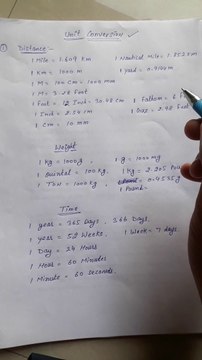 Unit Conversion
① Distance:-
1 Mile = 1.609 km    1 Nautical Mile = 1.852 km
1 Km = 1000 m    1 yard = 0.9144 m
1 M = 100 cm = 1000 mm
1 M = 3.28 Foot
1 Foot = 12 Inch = 30.48 cm    1 Fathom = 6 F
1 Inch = 2.54 cm    1 Gaz = Foot
1 cm = 10 mm
Weight
1 kg = 1000 g    1 g = 1000 mg
1 Quintal = 100 kg    1 kg = 2.205 Poun
1 Ton = 1000 kg    = 0.4535
1 Pound
Time
1 year = 365 Days, 366 Days.
1 year = 52 Weeks,    1 Week = 7 days
1 Day = 24 Hours
1 Hour = 60 Minutes
1 Minute = 60 Seconds.